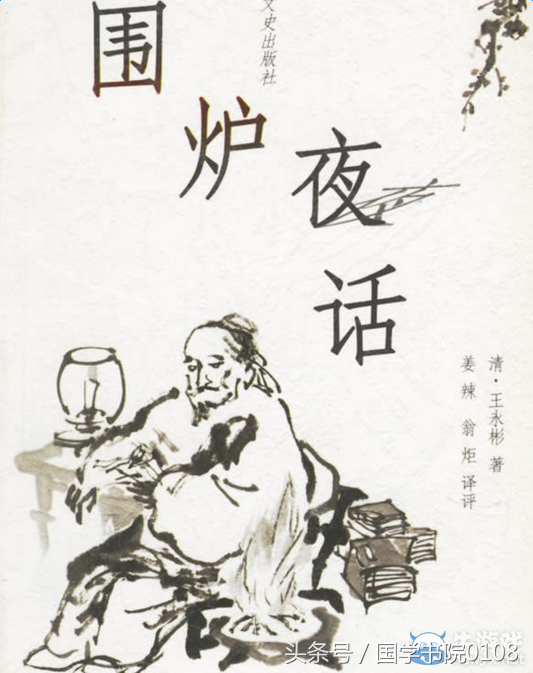 围
炉
夜
话
文史出版社
清·王永彬 著
姜辣 翁炬 译评
头条号 / 国学书院0108